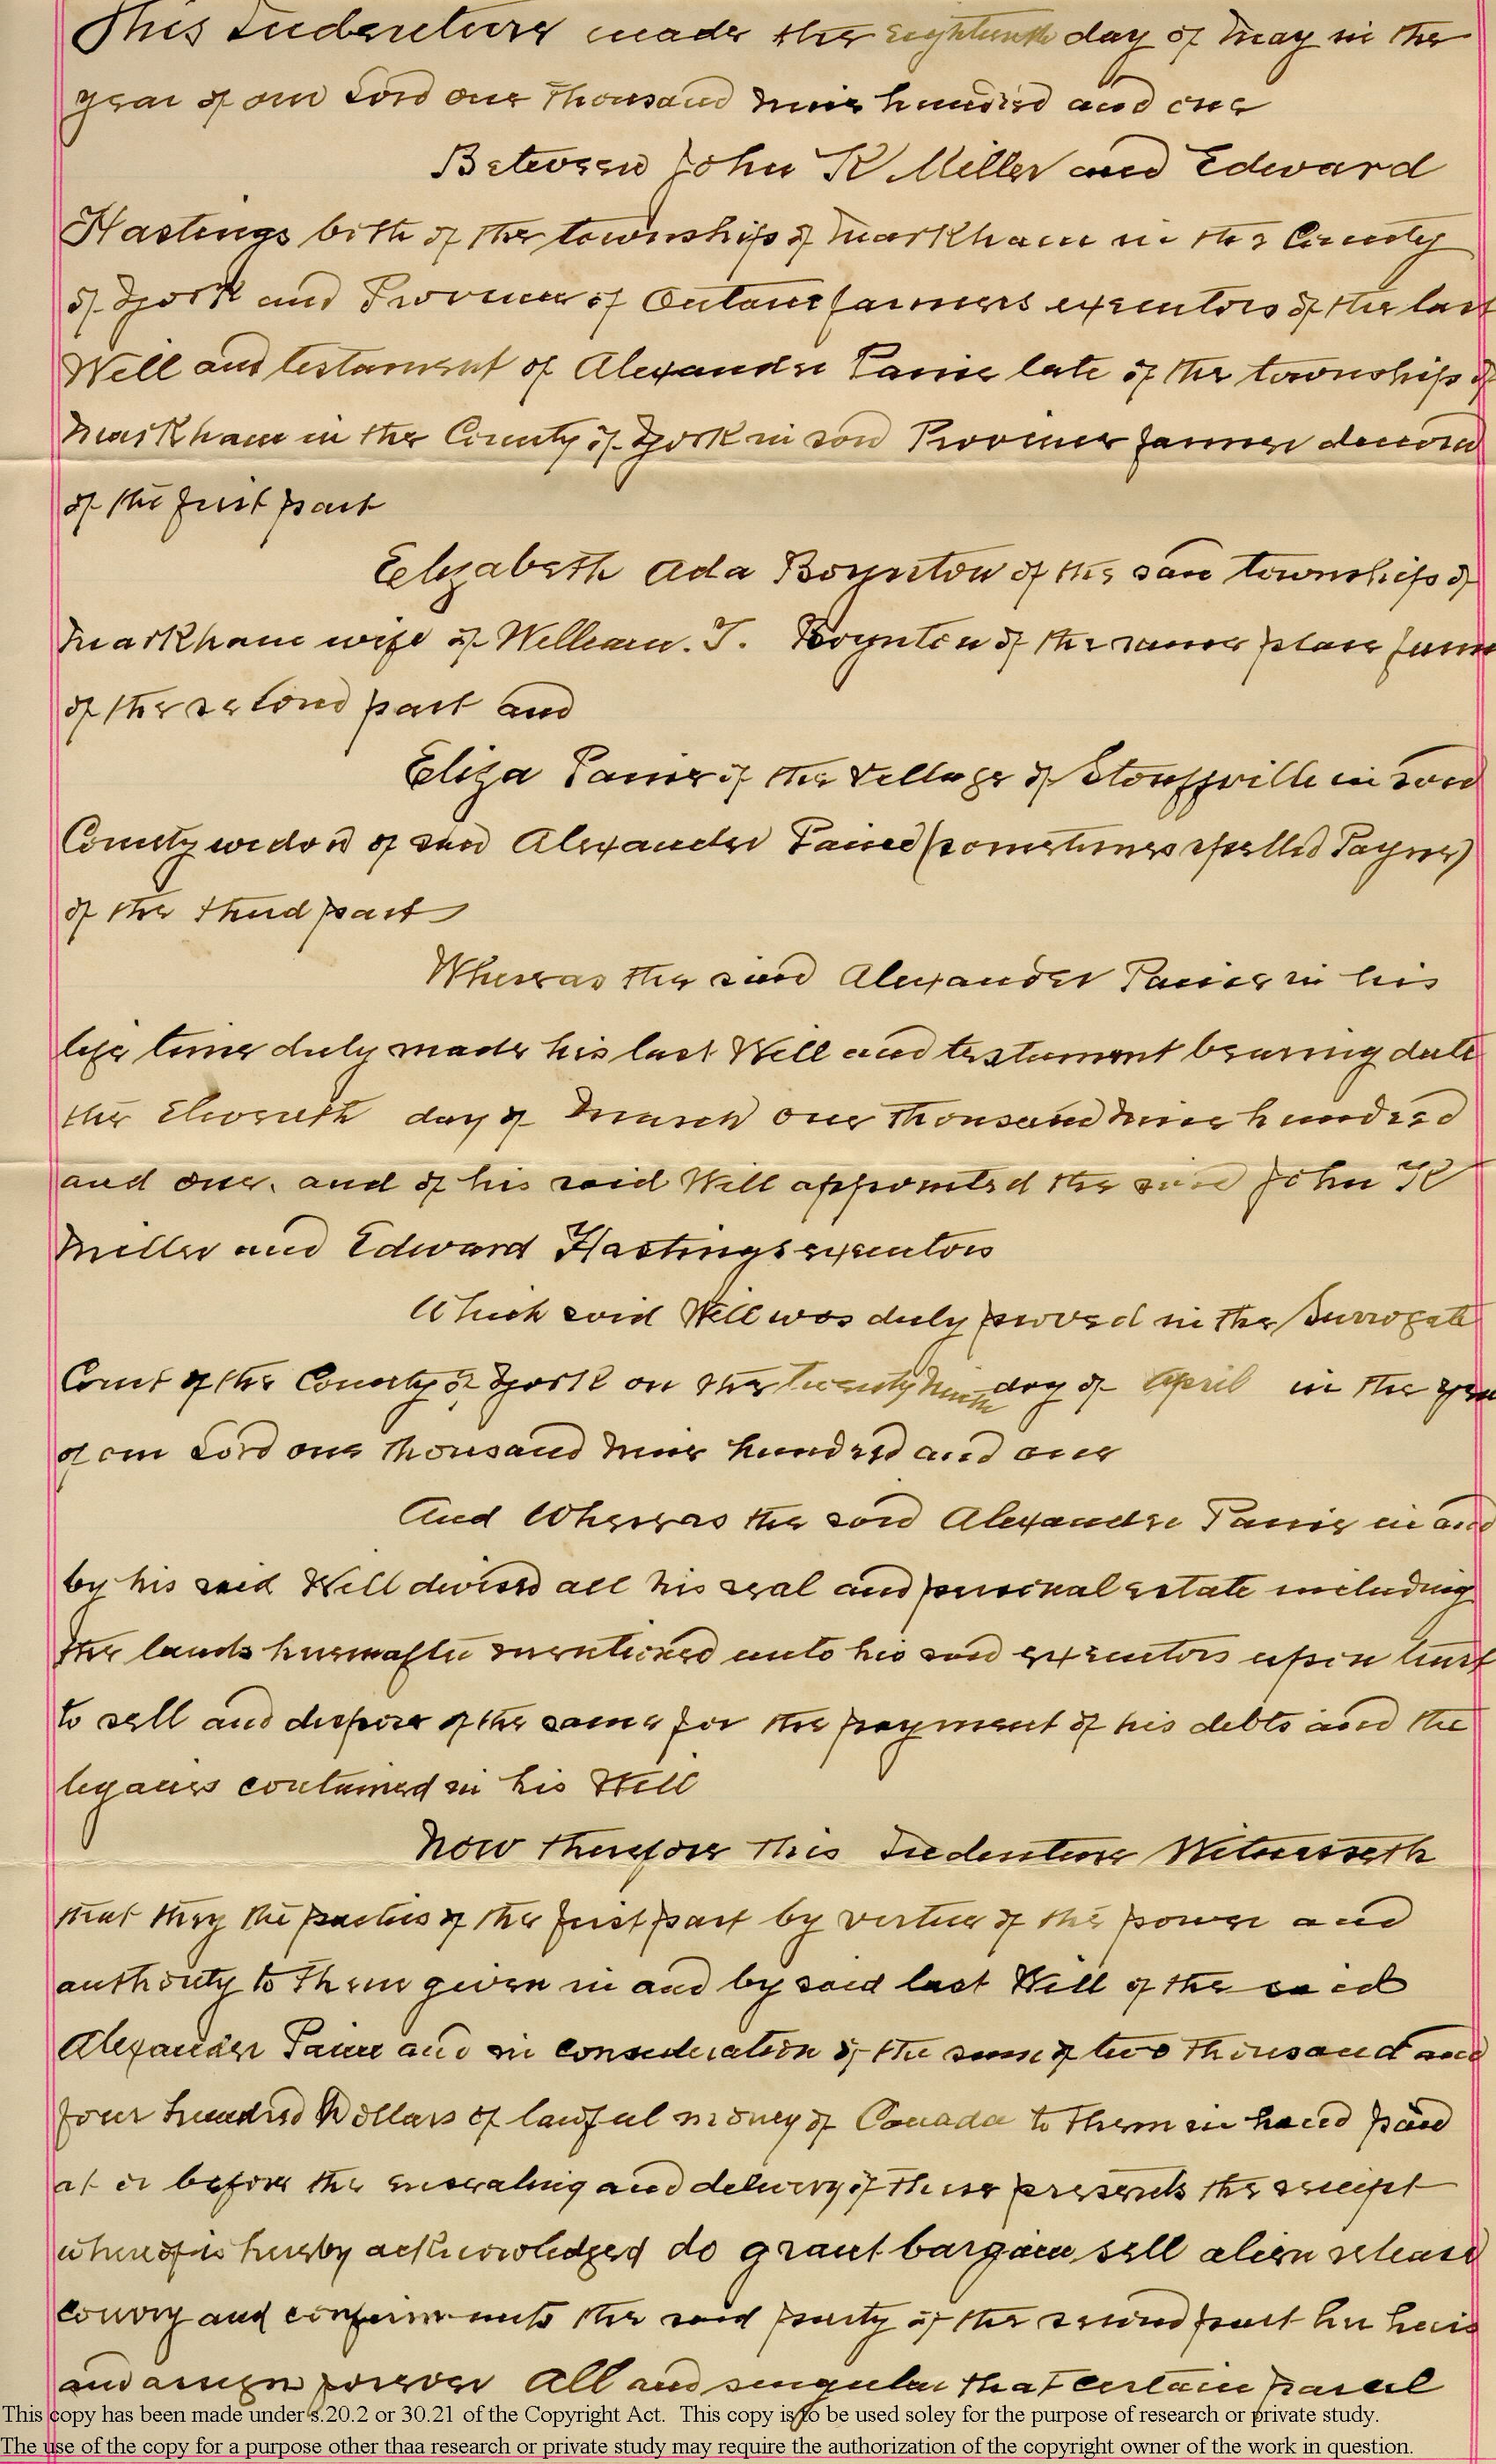 This Indenture made the eighteenth day of May in the
year of our Lord one thousand nine hundred and one
Between John K Miller and Edward
Hastings both of the township of Markham in the County
of York and Province of Ontario farmers executors of the last
Will and testament of Alexander Paine late of the township of
Markham in the County of York in said Province farmer deceased
of the first part
Elizabeth Ada Boynton of the said township of
Markham wife of William. T. Boynton of the same place farmer
of the second part and
Eliza Paine of the Village of Stouffville in said
County widow of said Alexander Paine (sometimes spelled Payne)
of the third part
Whereas the said Alexander Paine in his
life time duly made his last Will and testament bearing date
the Eleventh day of March one thousand nine hundred
and one. and of his said Will appointed the said John K
Miller and Edward Hastings executors
Which said Will was duly proved in the Surrogate
Court of the County of York on the twenty ninth day of April in the year
of our Lord one thousand nine hundred and one
And Whereas the said Alexander Paine in and
by his said Will devised all his real and personal estate including
the lands hereinafter mentioned unto his said executors upon trust
to sell and dispose of the same for the payment of his debts and the
legacies contained in his Will
Now therefore this Indenture Witnesseth
that they the parties of the first part by virtue of the power and
authority to them given in and by said last Will of the said
Alexander Paine and in consideration of the sum of two thousand and
four hundred Dollars of lawful money of Canada to them in hand paid
at or before the ensealing and delivery of these presents the receipt
whereof is hereby acknowledged do grant bargain sell alien release
convey and confirm unto the said party of the second part her heirs
and assigns forever All and singular that certain parcel
This copy has been made under s.20.2 or 30.21 of the Copyright Act. This copy is to be used soley for the purpose of research or private study.
The use of the copy for a purpose other thaa research or private study may require the authorization of the copyright owner of the work in question.